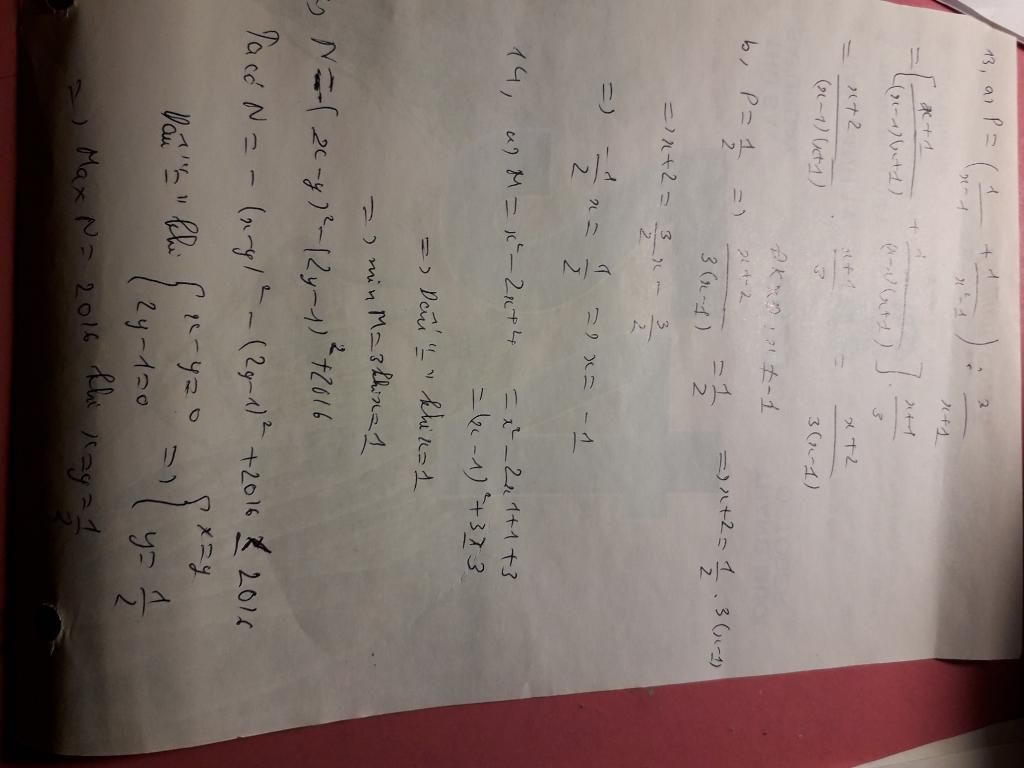 13, a) P = ( 1/x-1 + 1/x²-1 ) : /x+1
= [ x+1/(x-1)(x+1) + 1/(x-1)(x+1) ] . x+1/3
= x+2/(x-1)(x+1) . x+1/3 = x+2/3(x-1)
x ≠ -1
b, P = 1/2 => x+2/3(x-1) = 1/2 => x+2 = 1/2 . 3(x-1)
=> x+2 = 3/2 x - 3/2
=> -1/2 x = 1/2 => x = -1
14, a) M = x² - 2x+4 = x² - 2x+1+3
= (x-1)² + 3 ≥ 3
=> Dấu "=" khi x=1
=> min M=3 khi x=1
N = -(x-y)² - (2y-1)² + 2016
Ta có N = - (x-y)² - (2y-1)² + 2016 ≤ 2016
Dấu "=" khi { x-y=0 2y-1=0 => { x=y y= 1/2
=> Max N = 2016 khi x=y= 1/2